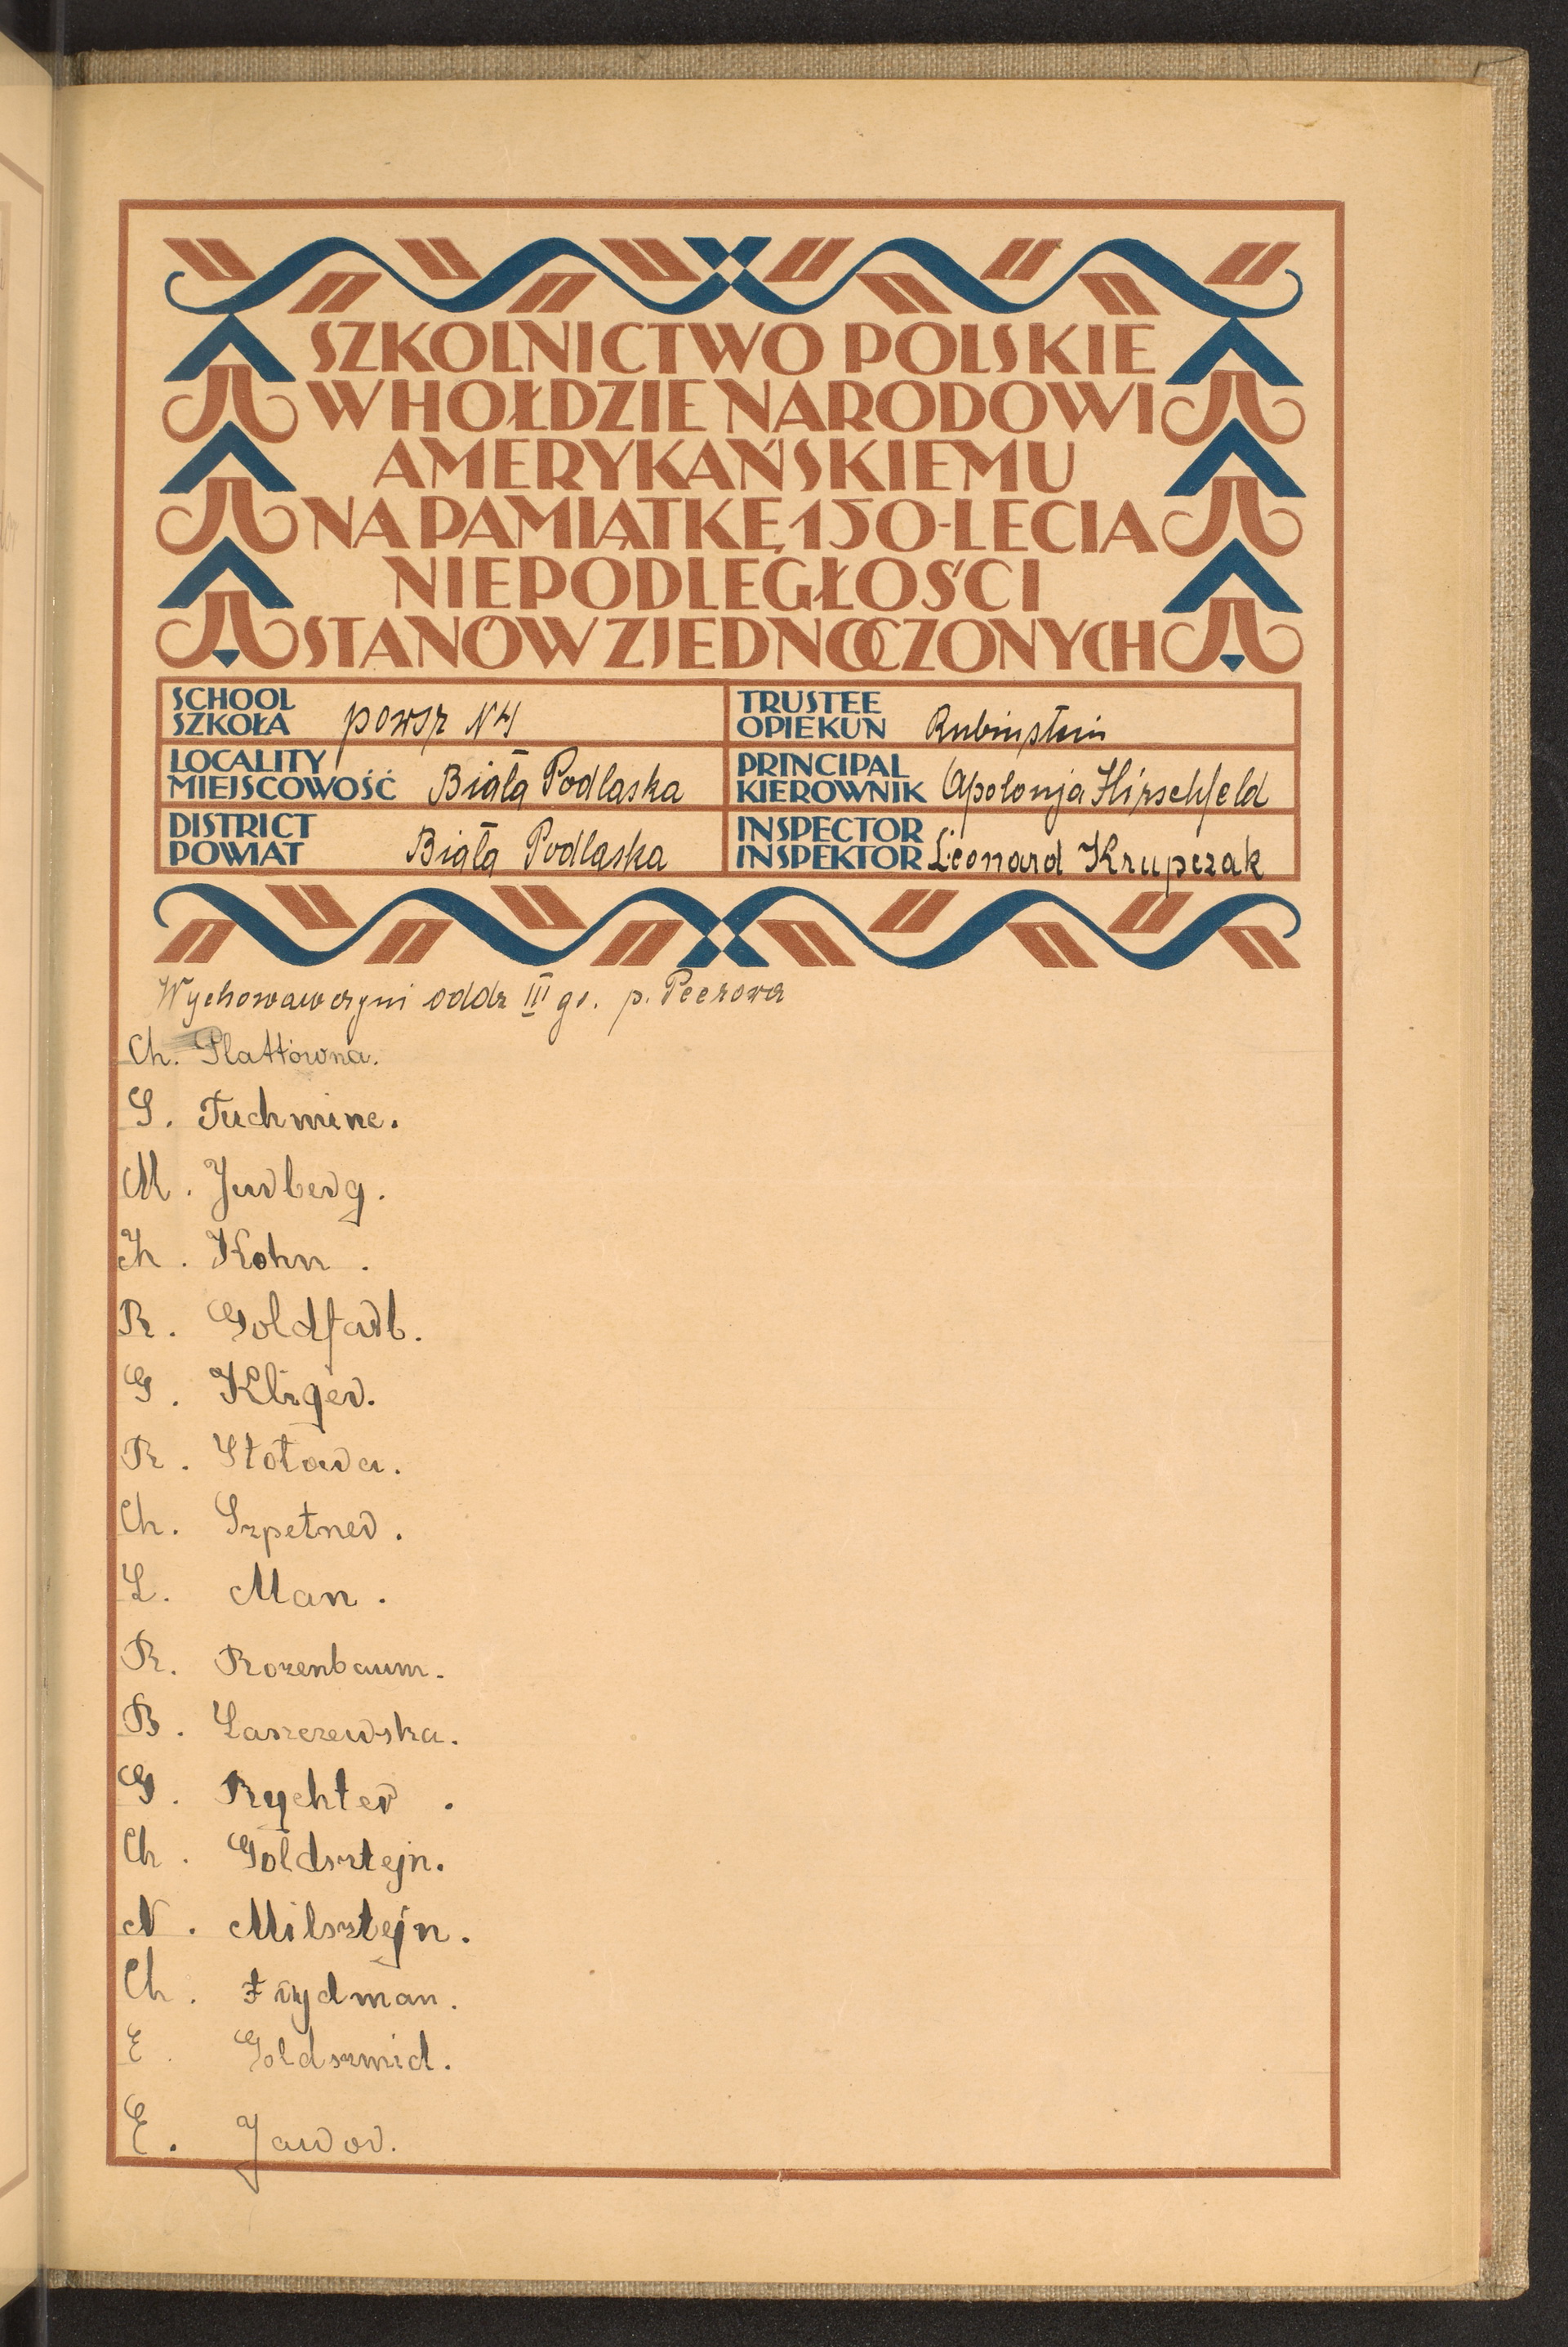 SZKOLNICTWO POLSKIE
W HOŁDZIE NARODOWI
AMERYKAŃSKIEMU
NA PAMIĄTKĘ 150-LECIA
NIEPODLEGŁOŚCI
STANÓW ZJEDNOCZONYCH
SCHOOL
SZKOŁA powsz N4
TRUSTEE
OPIEKUN Rubinstein
LOCALITY
MIEJSCOWOŚĆ Biała Podlaska
PRINCIPAL
KIEROWNIK Apolonja Hirschfeld
DISTRICT
POWIAT Biała Podlaska
INSPECTOR
INSPEKTOR Leonard Krupczak
Wychowawczyni oddz III go. p.
Ch. Plattówna.
S. Tuchmine.
M. Jurberg.
Ch. Kohn.
R. Goldfarb.
G. Kliger.
R. Stotara.
Ch. Szpetner.
L. Man.
R. Rozenbaum.
B. Laszczewska.
G. Rychter.
Ch. Goldsztejn.
N. Milsztejn.
Ch. Frydman.
E. Goldszmid.
E. Jawor.